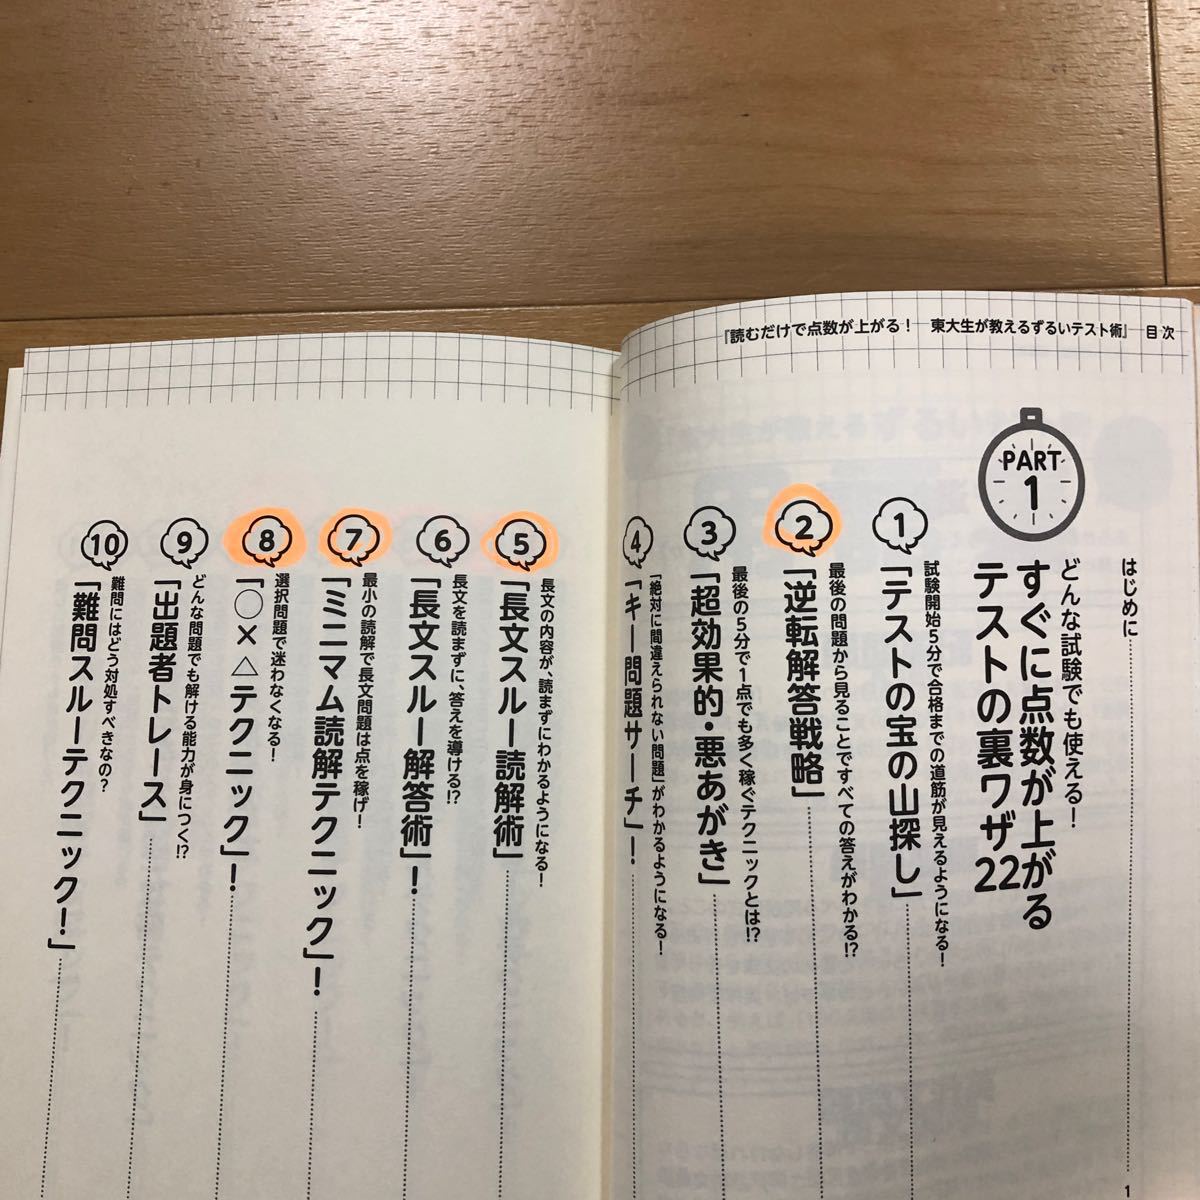 『読むだけで点数が上がる！　東大生が教えるずるいテスト術』　目次
はじめに
1
PART
1
どんな試験でも使える！
すぐに点数が上がる
テストの裏ワザ22
1
試験開始5分で合格までの道筋が見えるようになる！
「テストの宝の山探し」
2
最後の問題から見ることですべての答えがわかる!?
「逆転解答戦略」
3
最後の5分で1点でも多く稼ぐテクニックとは!?
「超効果的・悪あがき」
4
「絶対に間違えられない問題」がわかるようになる！
「キー問題サーチ」！
5
長文の内容が、読まずにわかるようになる！
「長文スルー読解術」
6
長文を読まずに、答えを導ける!?
「長文スルー解答術」！
7
最小の読解で長文問題は点を稼げ！
「ミニマム読解テクニック」！
8
選択問題で迷わなくなる！
「○×△テクニック」！
9
どんな問題でも解ける能力が身につく!?
「出題者トレース」
10
難問にはどう対処すべきなの？
「難問スルーテクニック！」